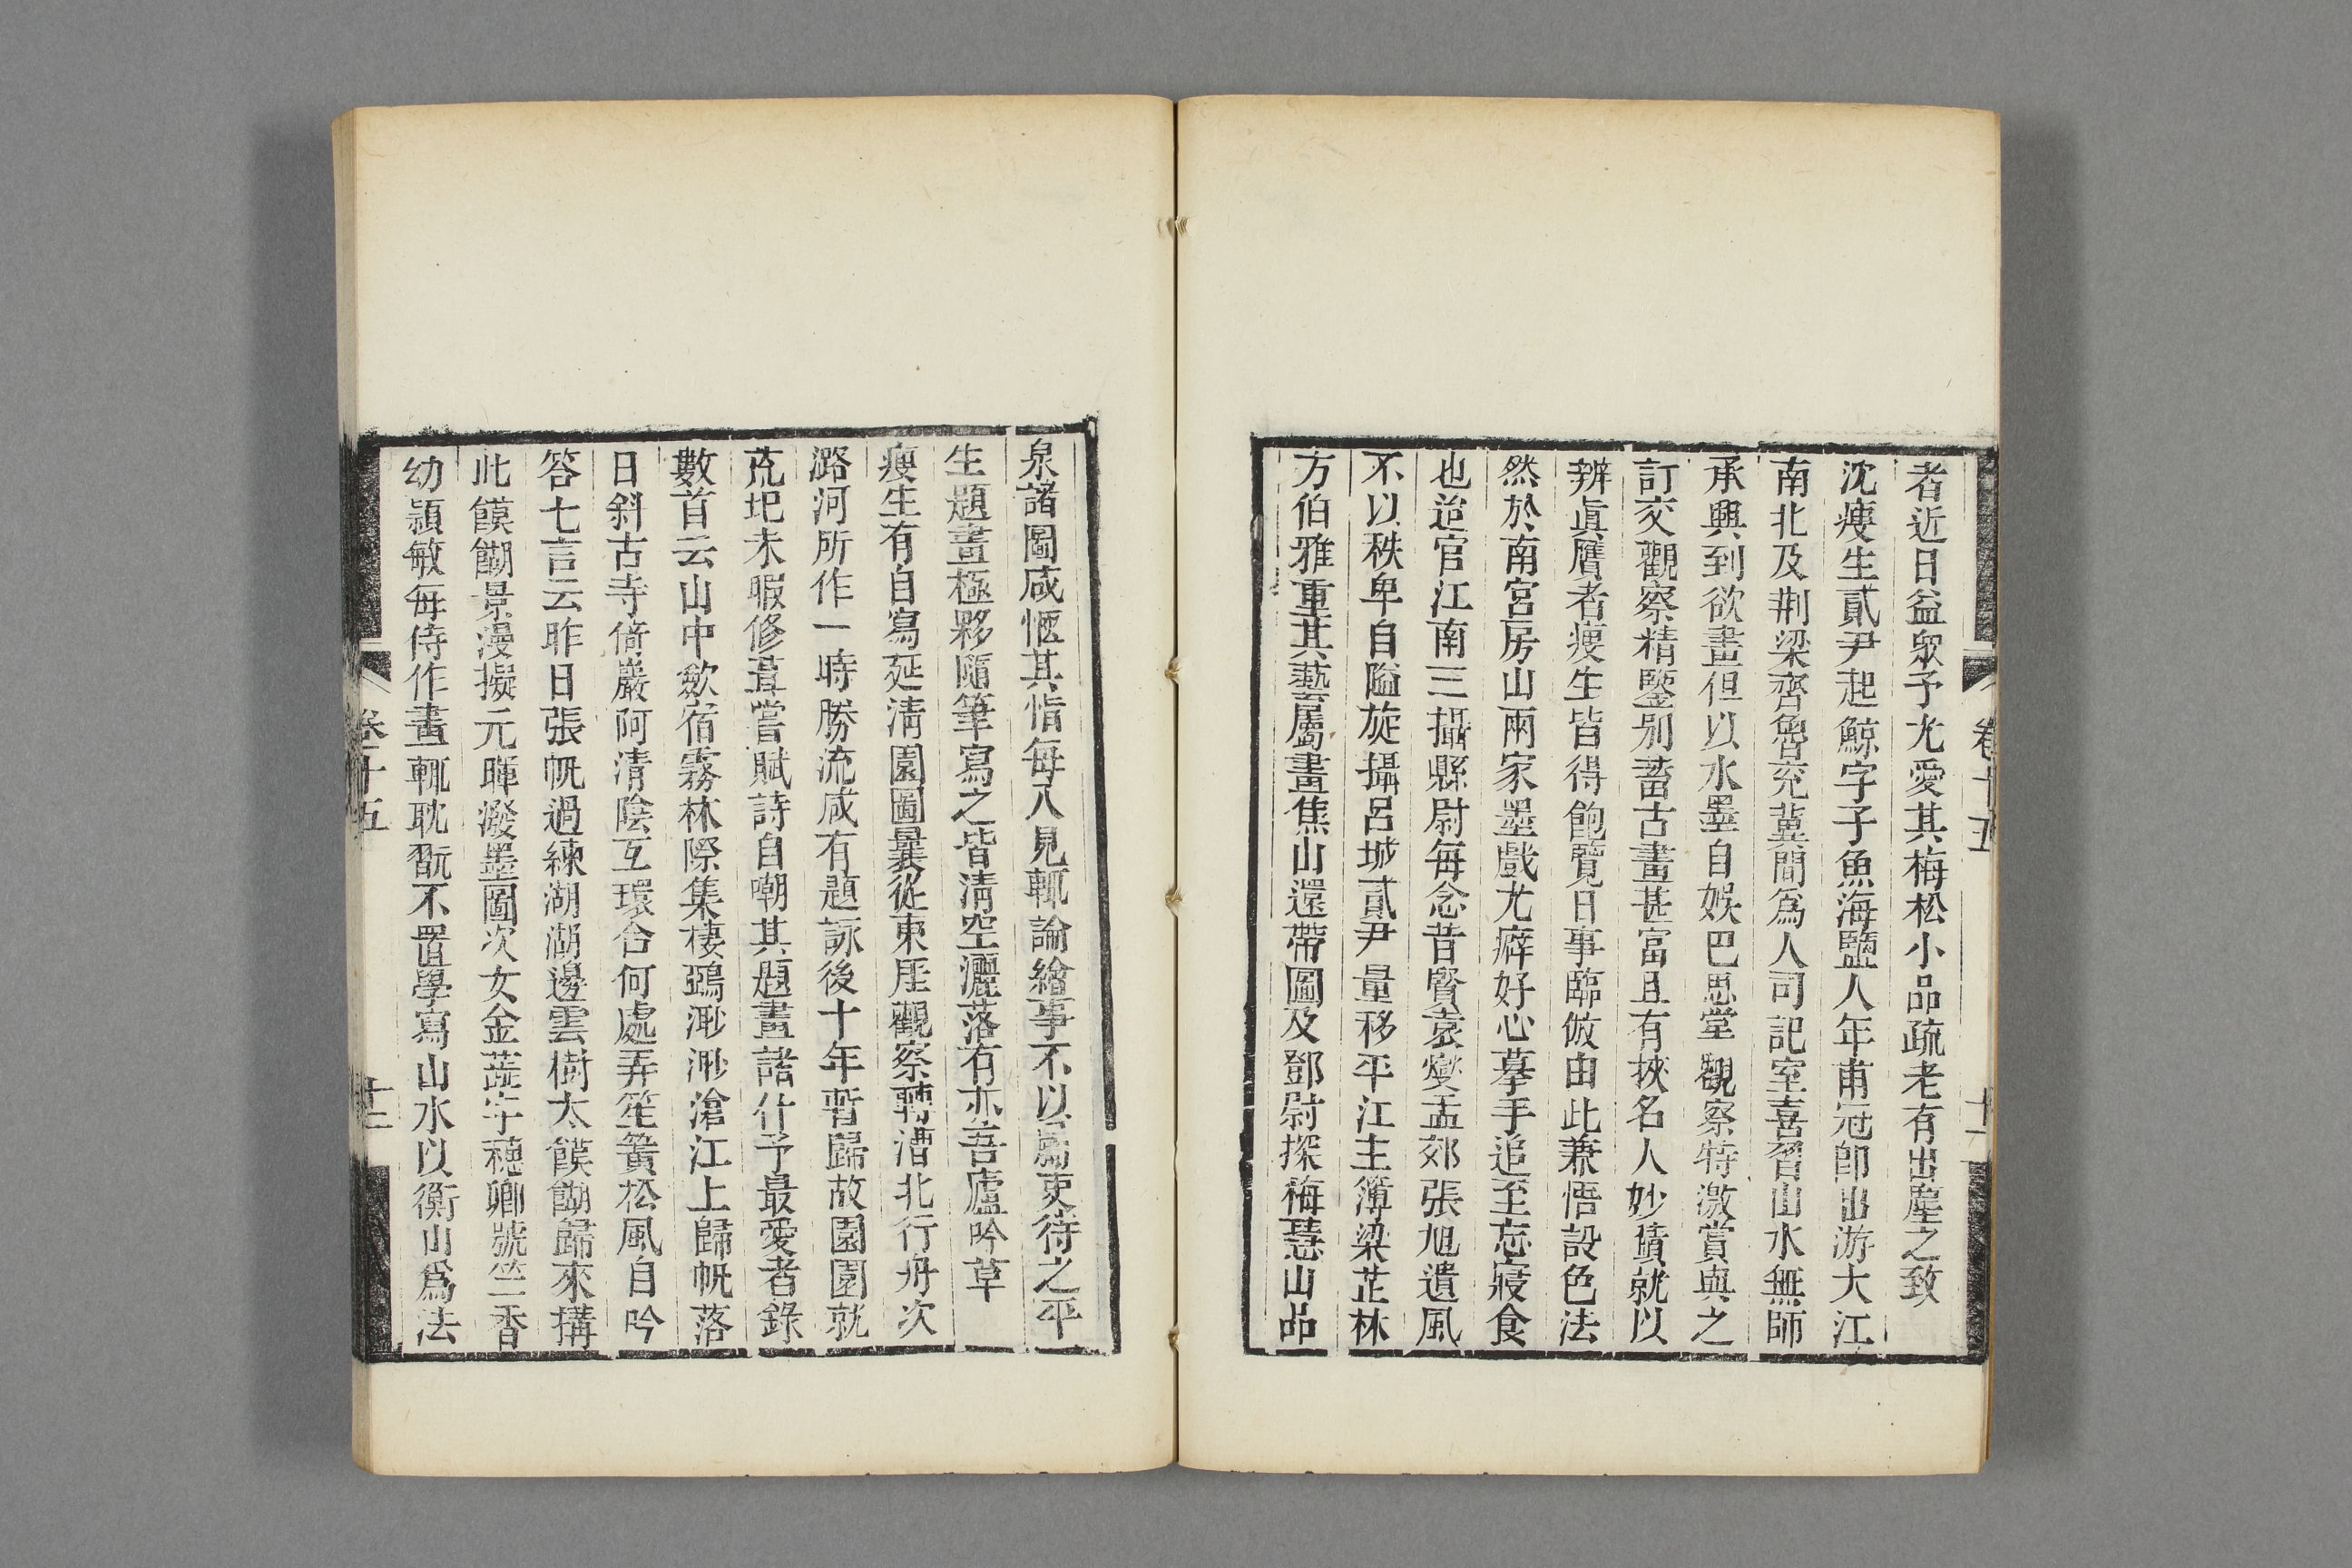 者近日益眾予尤愛其梅松小品疏老有出塵之致
沈瘦生貳尹起鯨字子魚海鹽人年甫冠卽出游大江
南北及荆梁齊魯兖冀間爲人司記室喜習山水無師
承興到欲畫但以水墨自娛巴思堂觀察特激賞與之
訂交觀察精鑒别蓄古畫甚富且有挾名人妙蹟就以
辨眞贗者瘦生皆得飽覽日事臨倣由此兼悟設色法
然於南宮房山兩家墨戲尤癖好心摹手追至忘寢食
也迨官江南三攝縣尉每念昔賢袁燮孟郊張旭遺風
不以秩卑自隘旋攝呂城貳尹量移平江主簿梁芷林
方伯雅重其藝屬畫焦山還帶圖及鄧尉探梅慧山品
卷十五
十一
泉諸圖咸愜其恉每入見輒論繪事不以屬吏待之平
生題畫極夥隨筆寫之皆清空灑落有亦吾廬吟草
瘦生有自寫延清園圖曩從東厓觀察轉漕北行舟次
潞河所作一時勝流咸有題詠後十年暫歸故園園就
荒圯未暇修葺嘗賦詩自嘲其題畫諸什予最愛者錄
數首云山中歛宿霧林際集棲鵶渺渺滄江上歸帆落
日斜古寺倚巖阿清陰互環合何處弄笙簧松風自吟
答七言云昨日張帆過練湖湖邊雲樹太饃餬歸來搆
此饃餬景漫擬元暉潑墨圖次女金蕋字穗卿號竺香
幼穎敏每侍作畫輒耽翫不置學寫山水以衡山爲法
卷十五
十二